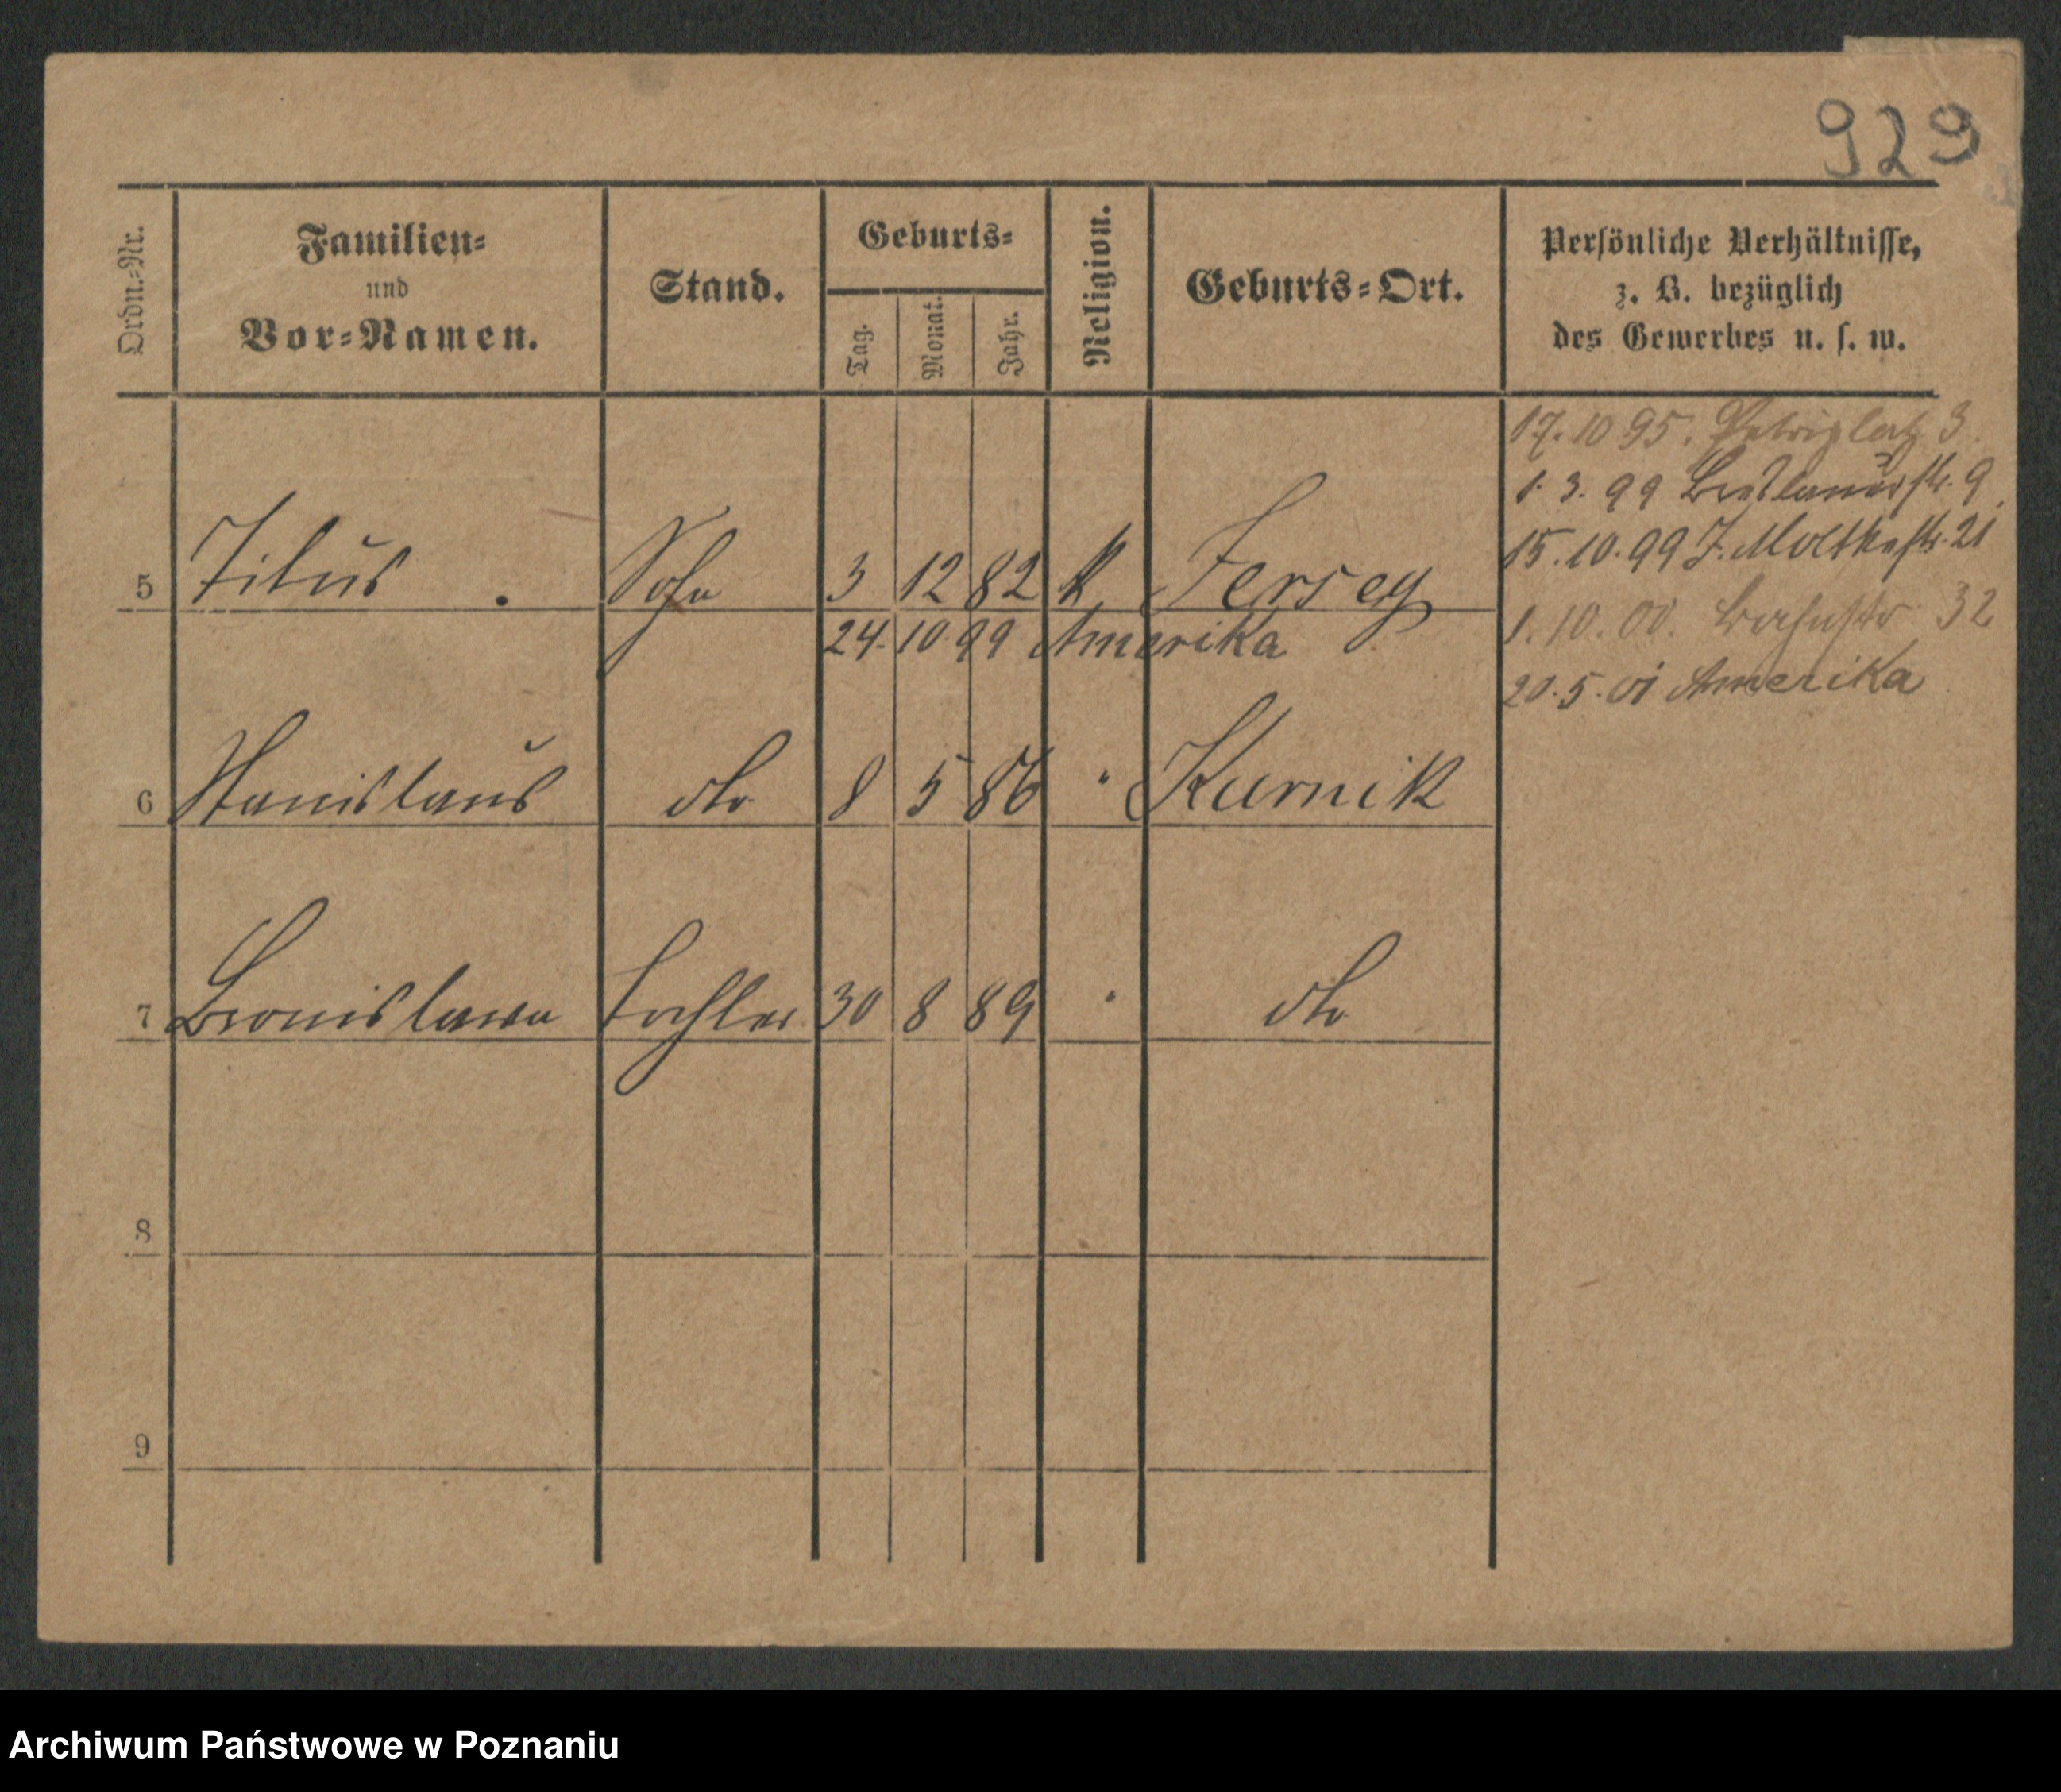 929
Ordn.-Nr.
Familien-
und
Vor-Namen.
Stand.
Geburts-
Tag.
Monat.
Jahr.
Religion.
Geburts-Ort.
Persönliche Verhältnisse,
z. B. bezüglich
des Gewerbes u. s. w.
17. 10 95. Petriplatz 3.
1. 3. 99 Breslauerstr. 9
15. 10. 99 J. Moltkestr. 21
1. 10. 00. Bahnstr 32
20. 5. 01 Amerika
5 Titus . Sohn 3 12 82 k Jersey
24. 10. 99 Amerika
6 Stanislaus do 8 5 86 " Kurnik
7 Bronislawa Tochter 30 8 89 " do
8
9
Archiwum Państwowe w Poznaniu